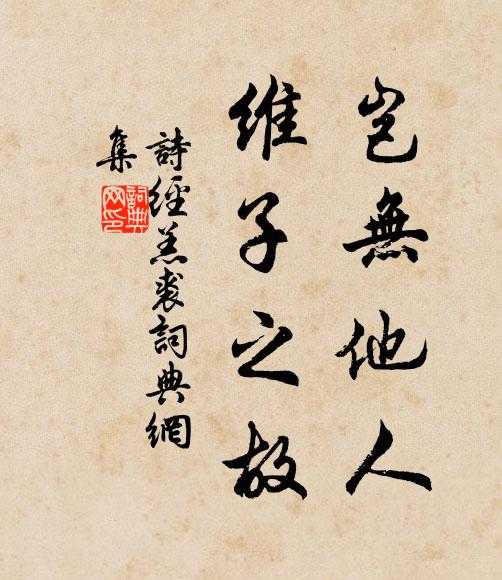 豈無他人
維子之故
詩經羔裘詞典網
集
詞典
网印